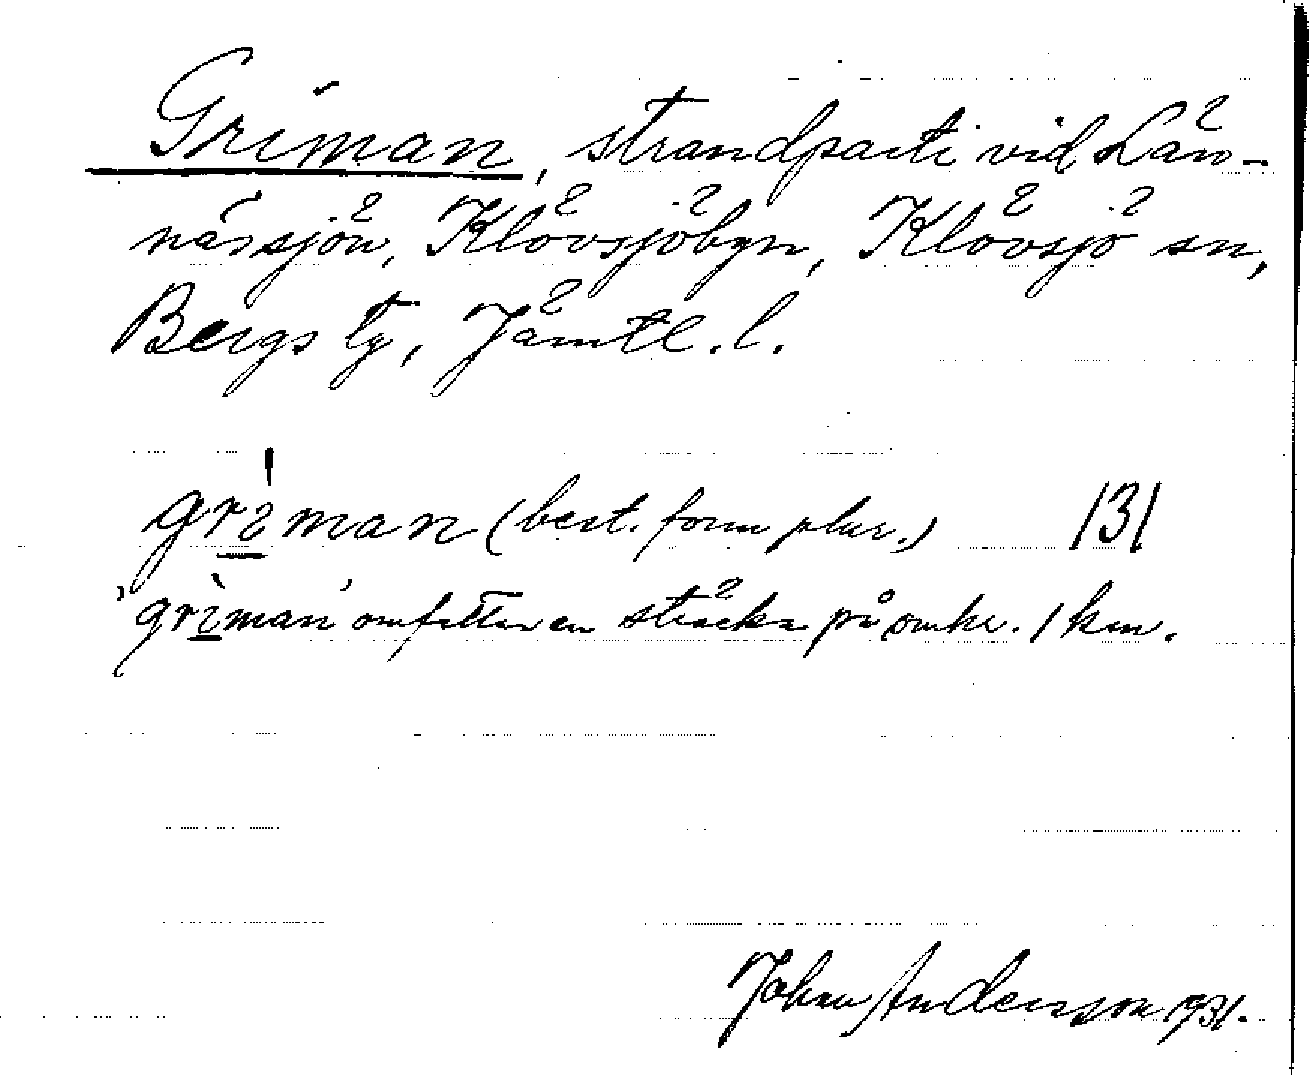 Griman, strandparti vid Län-
nässjön, Klövsjöbyn, Klövsjö sn,
Bergs tg, Jämtl. l.
griman (best. form plur.) 131
"griman" omfattar en sträcka på omkr. 1 km.
Johan Anderson 1931.